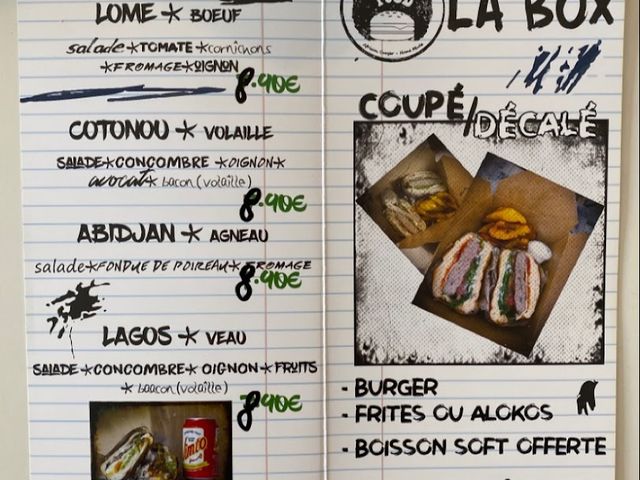 LOME * BOEUF
salade * TOMATE * cornichons
* FROMAGE * OIGNON
8.90€
COTONOU * VOLAILLE
SALADE * CONCOMBRE * OIGNON *
avocat * bacon (volaille)
8.90€
ABIDJAN * AGNEAU
salade * FONDUE DE POIREAU * FROMAGE
8.90€
LAGOS * VEAU
SALADE * CONCOMBRE * OIGNON * FRUITS
* baacon (volaille)
7.90€
FOOD
LA BOX
COUPÉ/DÉCALÉ
- BURGER
- FRITES OU ALOKOS
- BOISSON SOFT OFFERTE